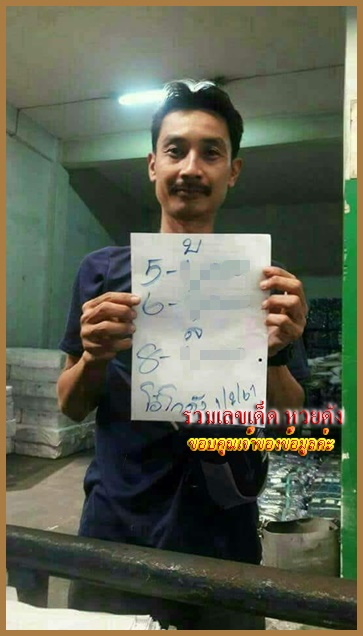 บ
5-
6-
ล
8-
โอ๋โกดัง 1/2/67
รวมเลขเด็ด หวยดัง
ขอบคุณเจ้าของข้อมูลค่ะ